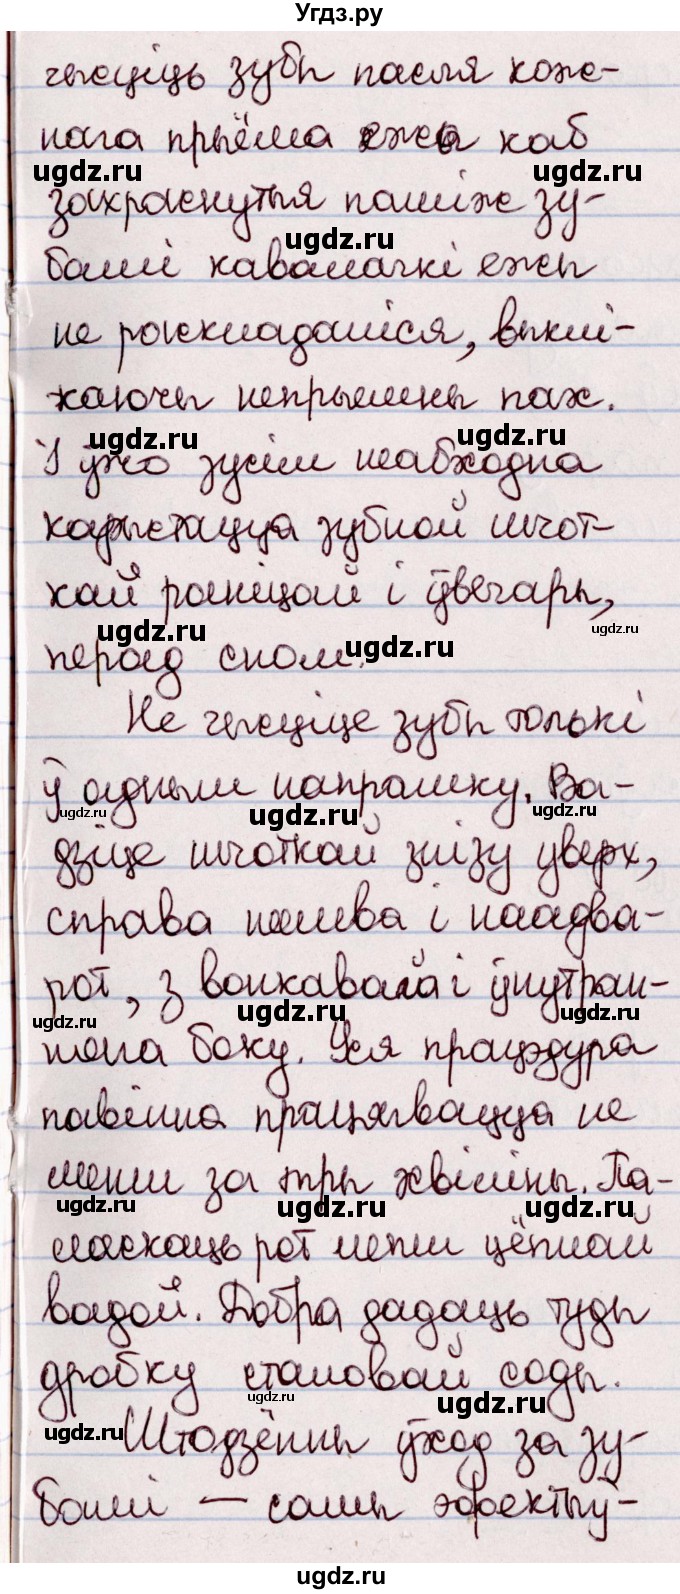 Угдз.ру
чысціць зубы пасля кож-
нага прыёма ежы каб
захраснутыя паміж зу-
бамі кавалачкі ежы
не раскладаліся, выклі-
каючы непрыемны пах.
І ўжо зусім неабходна
карыстацца зубной шчот-
кай раніцай і ўвечары,
перад сном.
Не чысціце зубы толькі
ў адным напрамку. Ва-
дзіце шчоткай знізу уверх,
справа налева і наадва-
рот, з вонкавага і ўнутран-
нага боку. Уся працэдура
павінна працягвацца не
менш за тры хвіліны. Па-
ласкаць рот лепш цёплай
вадой. Добра дадаць туды
дробку сталовай соды.
Штодзённы ўход за зу-
бамі — самы эфектыў-
ugdz.ru